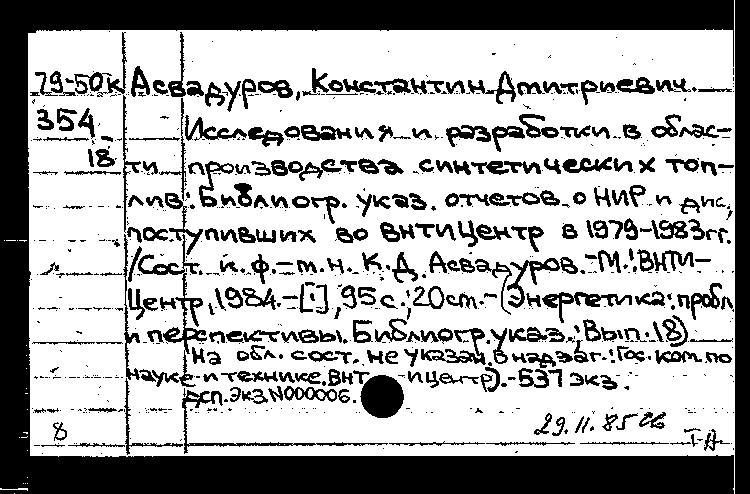 79-50к Асвадуров, Константин Дмитриевич.
354
18
Исследования и разработки в облас-
ти производства синтетических топ-
лив: Библиогр. указ. отчетов о НИР и дис,
поступивших во ВНТИЦентр в 1979-1983гг.
/Сост. к.ф.-м.н. К.Д. Асвадуров.-М.:ВНТИ-
Центр, 1984.-[1], 95с.; 20см.-(Энергетика: пробл
и перспективы. Библиогр. указ.; Вып. 18)
На обл. сост. не указан. В надзаг.: Гос. ком. по
науке и технике. ВНТ ицентр).-537 экз.
ДСП. Экз N000006.
8
29.11.85
Т-А